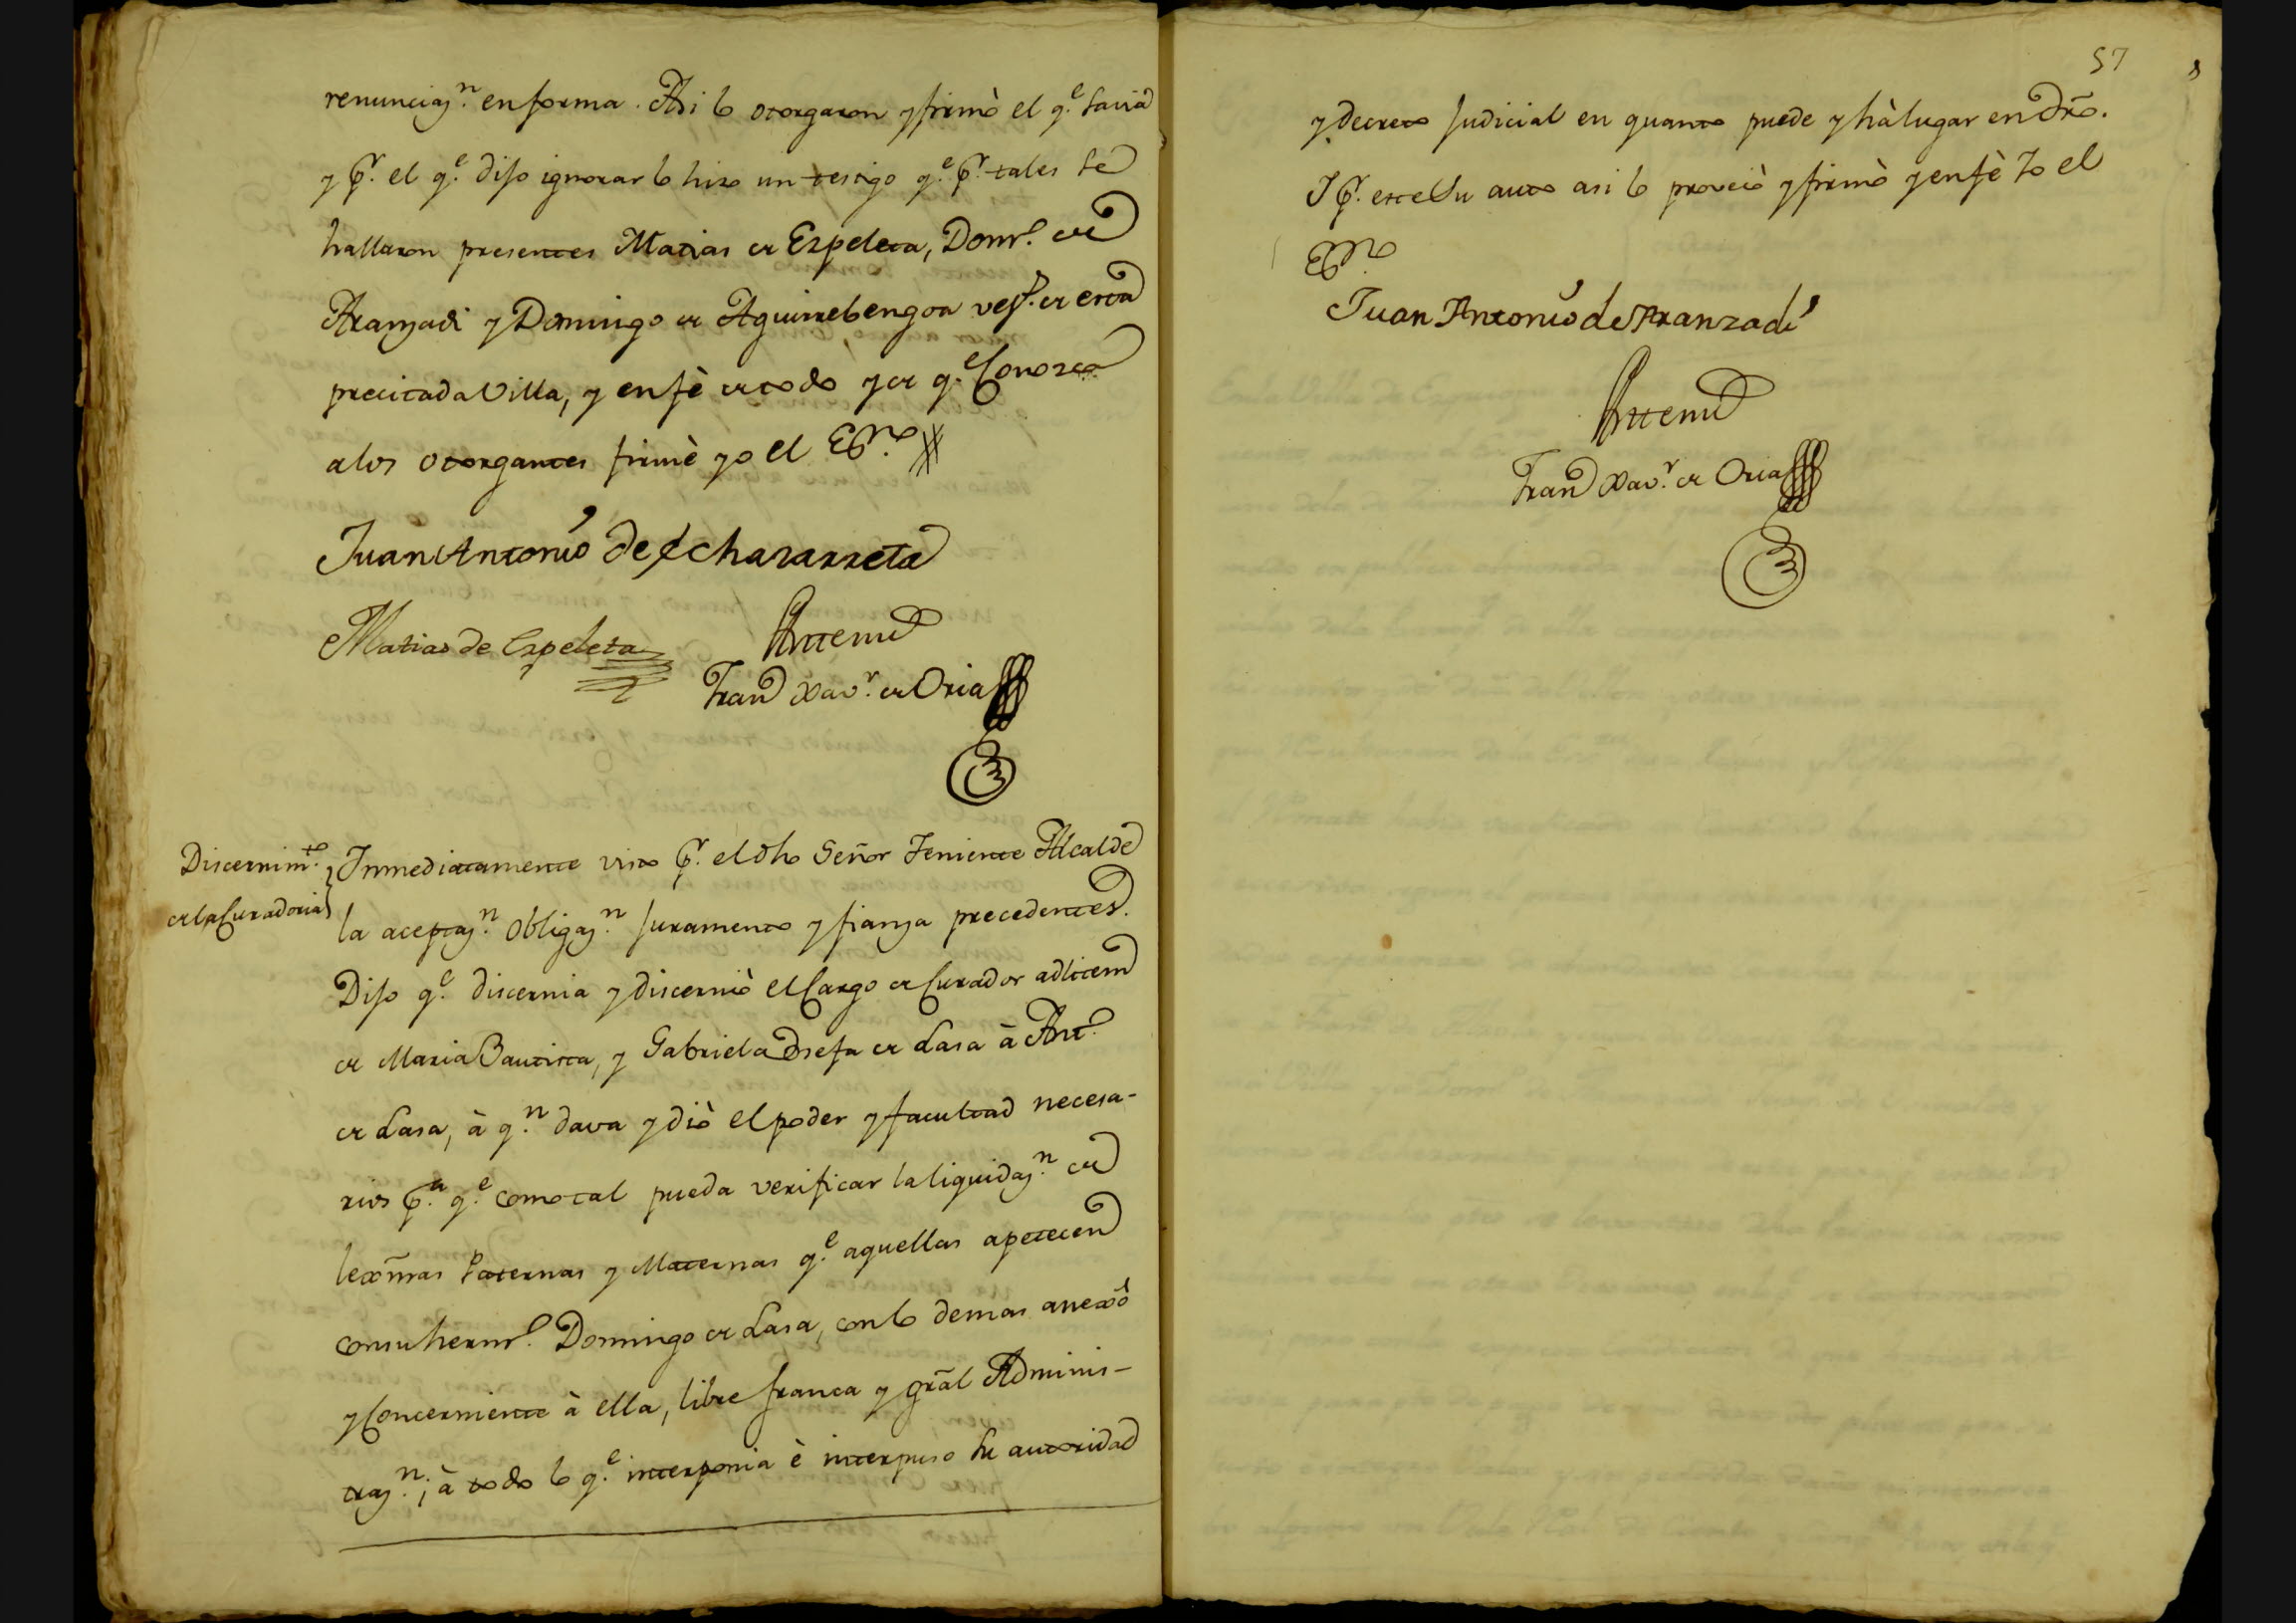 renunciaz.n en forma. Asi lo otorgaron y firmò el q.e savia
y p.r el q.e dijo ignorar lo hizo un testigo q.e p.r tales se
hallaron presentes Matias de Ezpeleta, Dom.o de
Aranzadi y Domingo de Aguirrebengoa vez.s de esta
precitada Villa, y en fè de todo y de q.e Conozco
a los otorgantes firmè yo el Es.no
Juan Antonio de Echazarreta
Matias de Ezpeleta
Antemi
Fran.co Xav.r de Oria
Discernim.to
de la Curadoria
Inmediatamente visto p.r el dho Señor Teniente Alcalde
la aceptaz.n obligaz.n juramento y fianza precedentes.
Dijo q.e discernia y discerniò el Cargo de Curador adlitem
de Maria Bautista, y Gabriela Josefa de Lasa à Ant.o
de Lasa, à q.n dava y diò el poder y facultad necesa-
rios p.a q.e como tal pueda verificar la liquidaz.n de
lexmas Paternas y Maternas q.e aquellas apetecen
con su herm.o Domingo de Lasa, con lo demas anexo
y Concerniente à ella, libre franca y gral Adminis-
traz.n; à todo lo q.e interponia è interpuso su autoridad
57
y decreto Judicial en quanto puede y hà lugar en dro.
I p.r este su auto asi lo proveiò y firmò y en fè Yo el
Es.no
Juan Antonio de Aranzadi
Antemi
Fran.co Xav.r de Oria